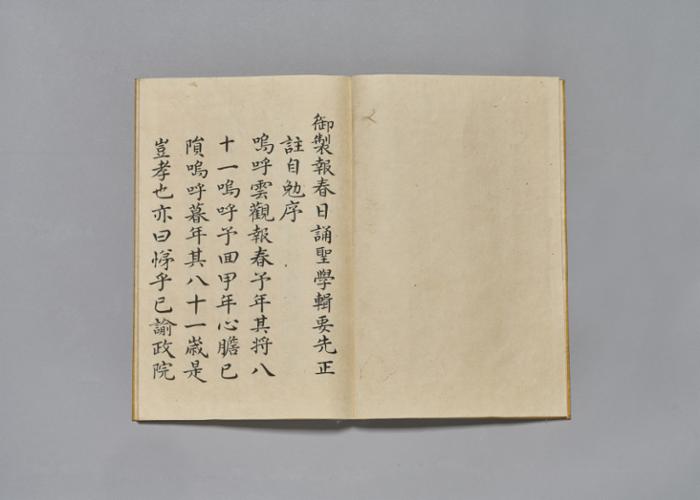 御製報春日誦聖學輯要先正
註自勉序
嗚呼雲觀報春予年其將八
十一嗚呼予回甲年心膽已
隕嗚呼暮年其八十一歲是
豈孝也亦曰悌乎已諭政院